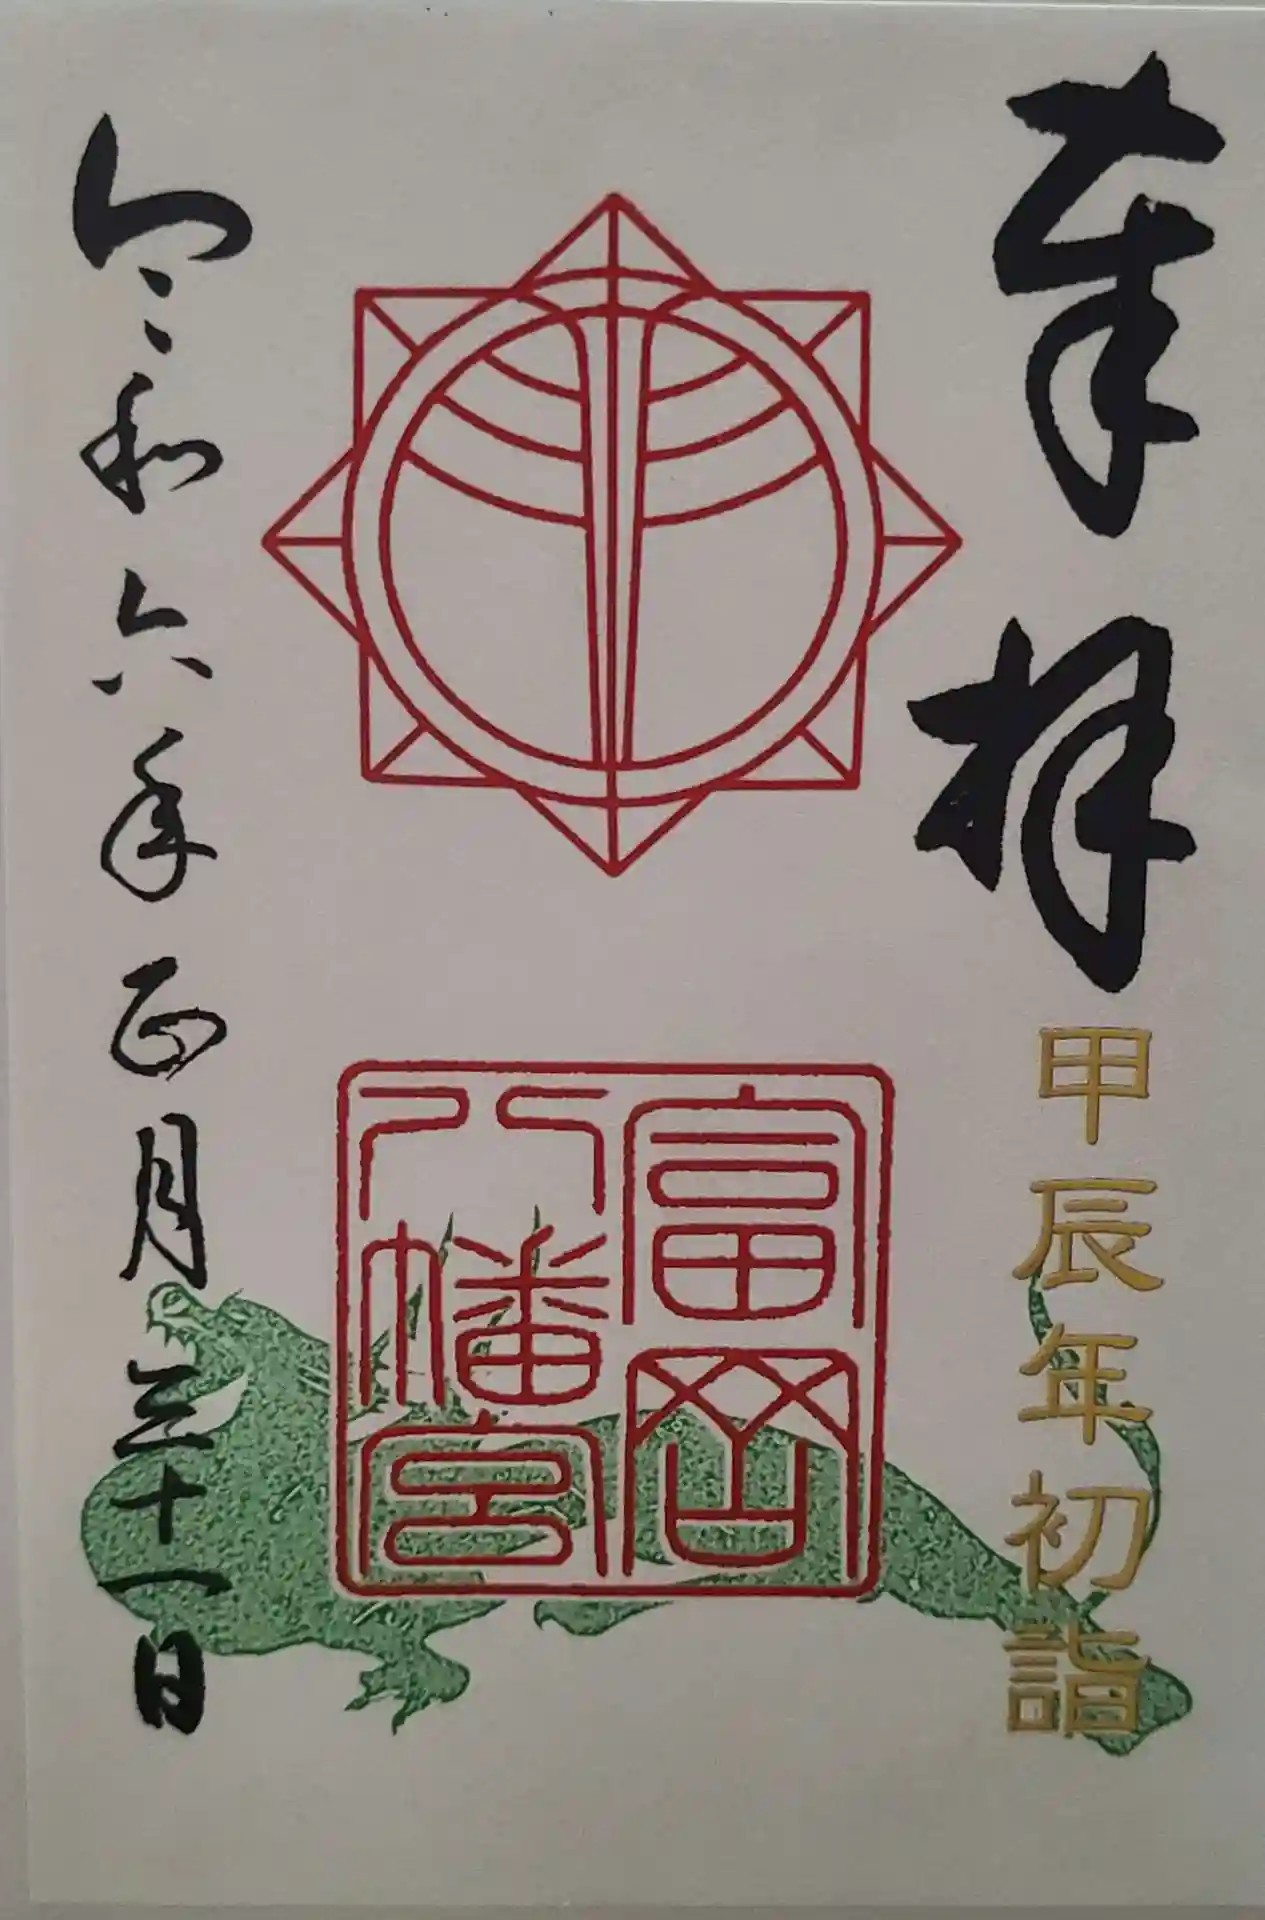 奉拝
甲辰年初詣
富岡
八幡宮
令和六年正月三十一日